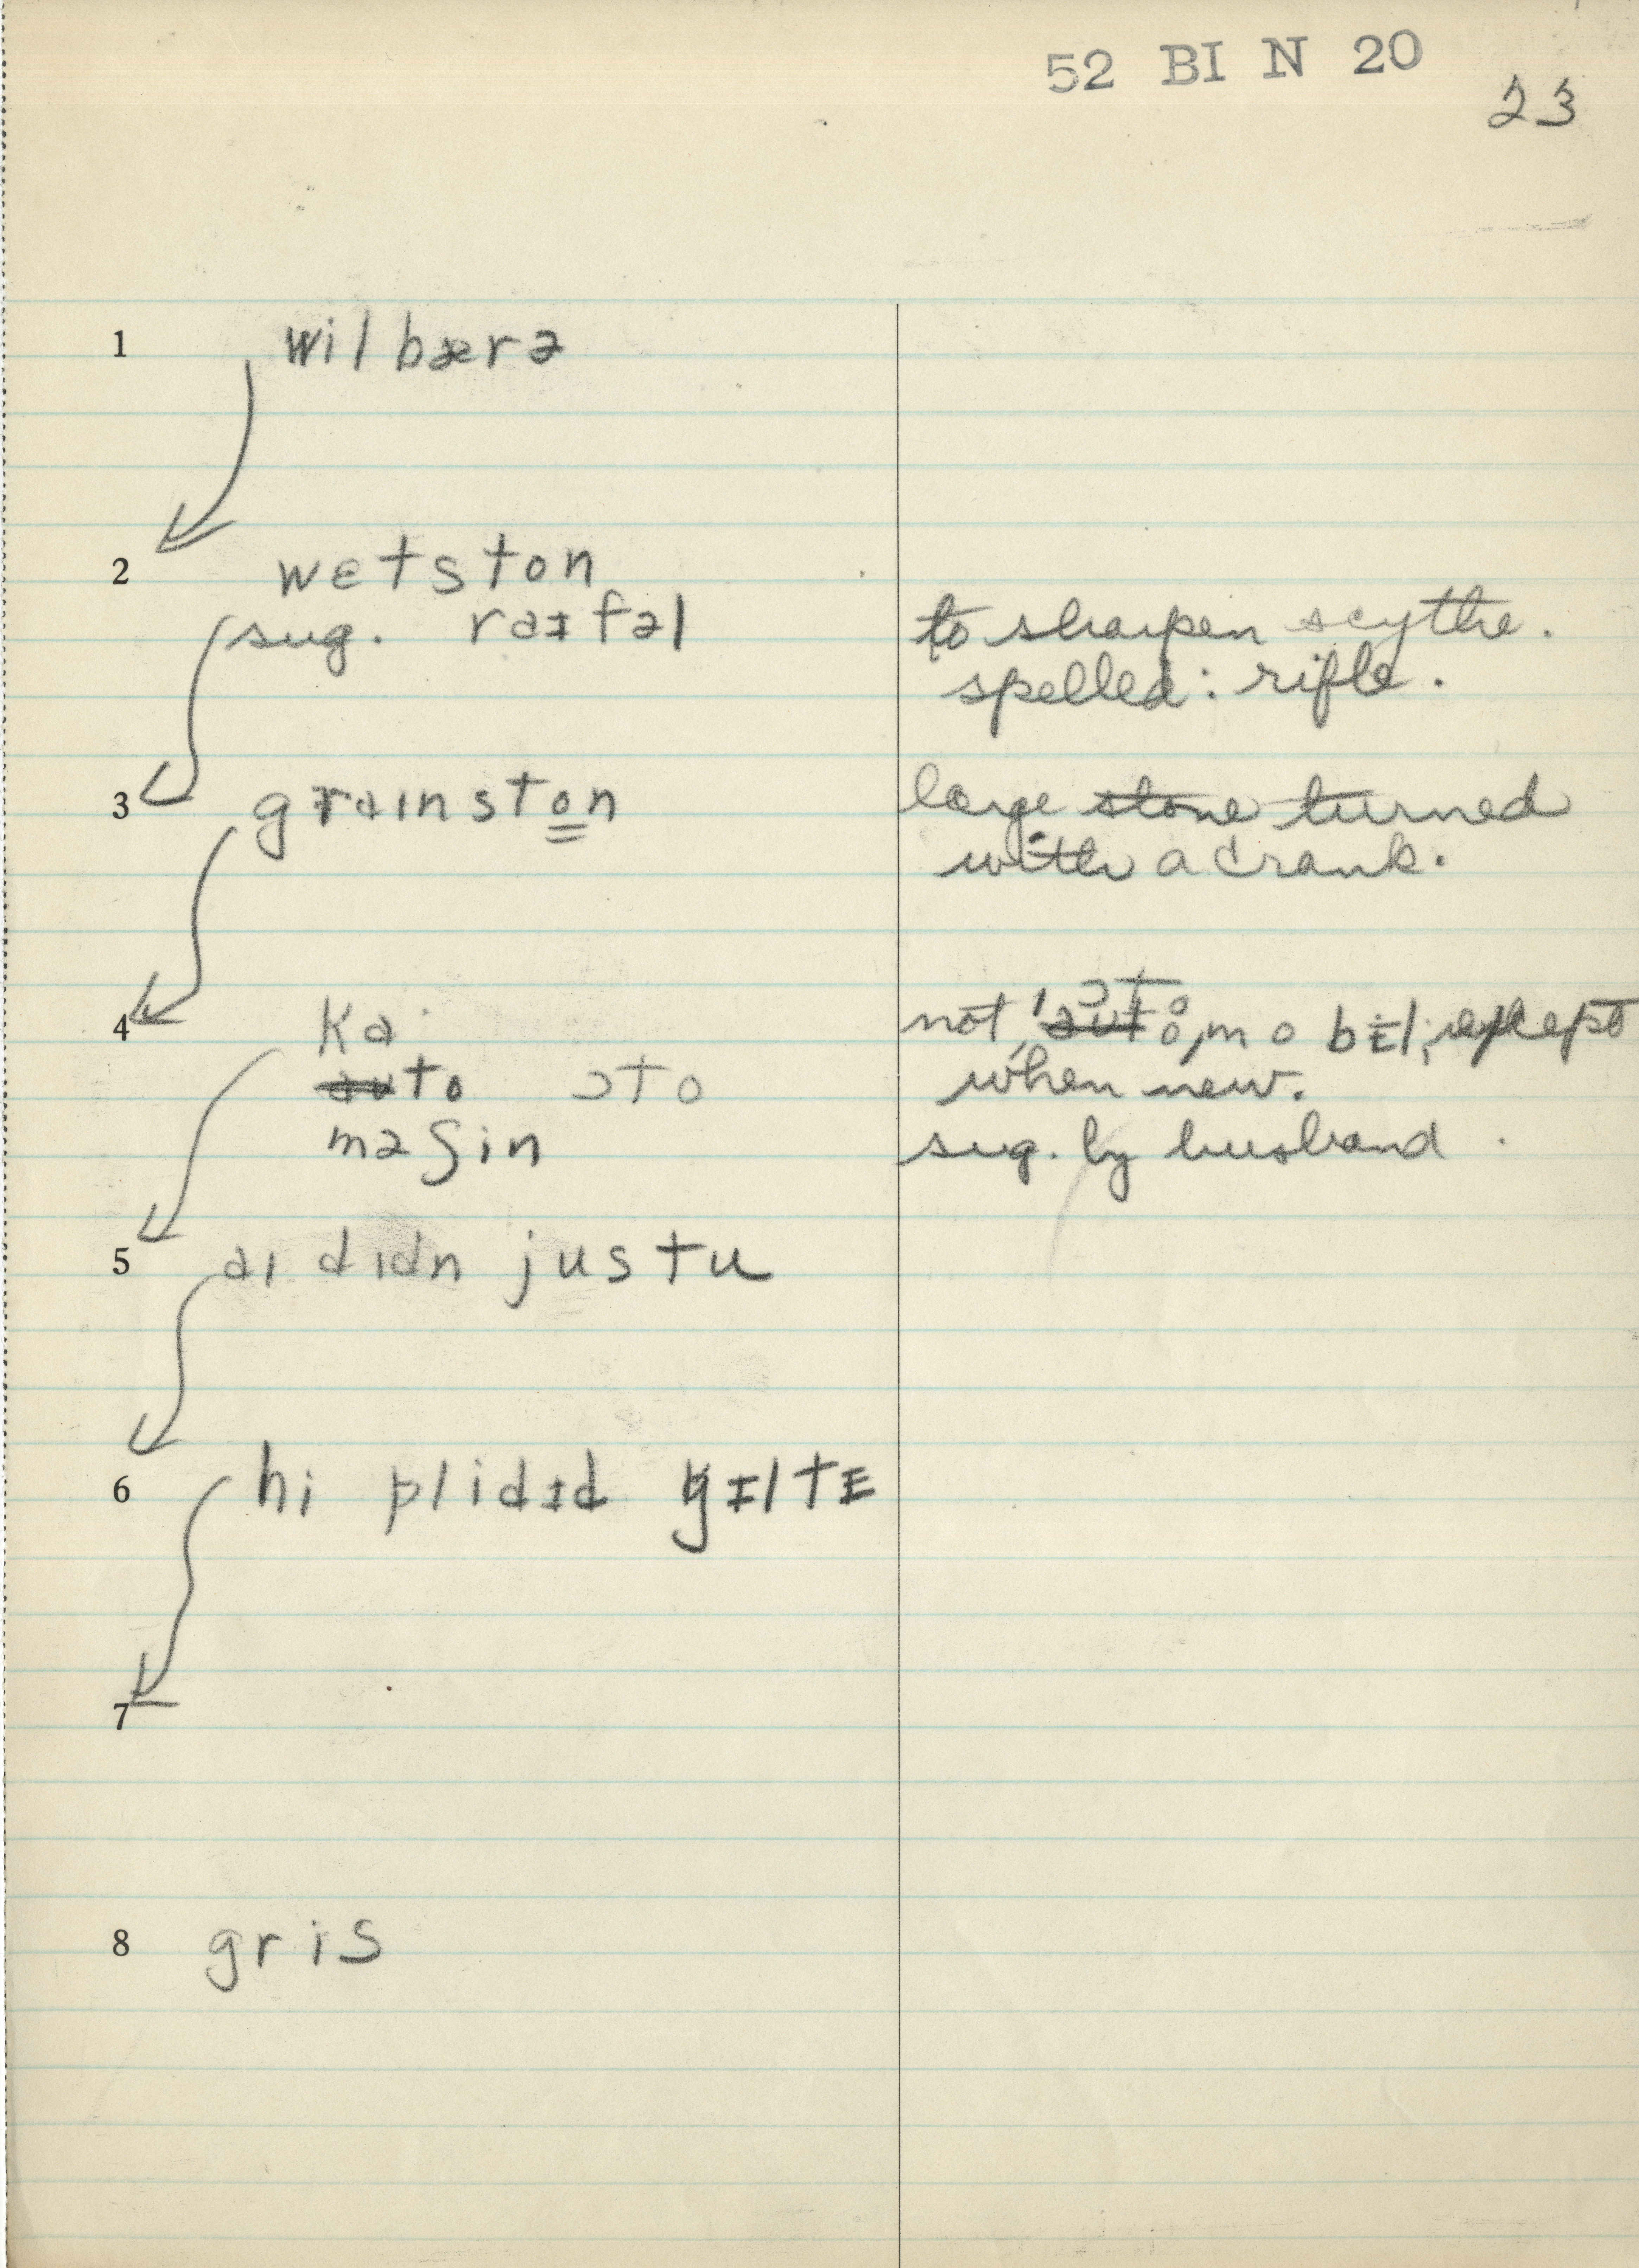 52 BI N 20
23
1 wilbærə
2 wɛtston
sug. raɪfəl to sharpen scythe.
spelled: rifle.
3 graɪnston large stone turned
with a crank.
4 ka
to ɔto
not ɔtomobɪl; except
when new.
məʃin sug. by husband.
5 aɪ dɪdn justu
6 hi plidɪd gɪltɪ
7
8 gris